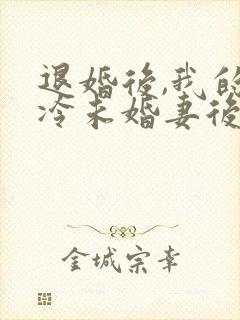 退婚後,我的
冷未婚妻後
金城宗幸